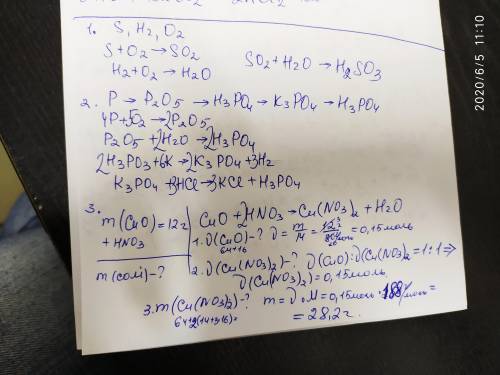 1. S, H2, O2
S + O2 → SO2
SO2 + H2O → H2SO3
H2 + O2 → H2O
2. P → P2O5 → H3PO4 → K3PO4 → H3PO4
4P + 5O2 → 2P2O5
P2O5 + 3H2O → 2H3PO4
2H3PO3 + 6K → 2K3PO4 + 3H2
K3PO4 + 3HCl → 3KCl + H3PO4
3.
m(CuO) = 12г
+ HNO3
m(солі) - ?
CuO + 2HNO3 → Cu(NO3)2 + H2O
1. ν(CuO) - ? ν = m/M = = 0,15моль
64+16
2. ν(Cu(NO3)2) - ? ν(CuO) : ν(Cu(NO3)2 = 1:1 ⇒
ν(Cu(NO3)2) = 0,15моль
3. m(Cu(NO3)2) - ? m = ν · M = 0,15моль · 188г/моль =
= 28,2г.
2020/6/5 11:10